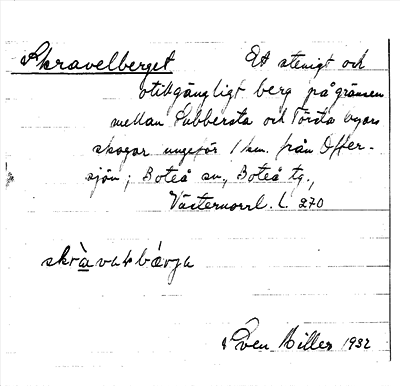 Skravelberget Et stenigt och
otillgängligt berg på gränsen
mellan Subbersta och Törsta byars
skogar ungefär 1 km. från Offer-
sjön; Boteå sn., Boteå tg.,
Västernorrl. l. 270
skràvalbǽrja
Sven Miller 1932